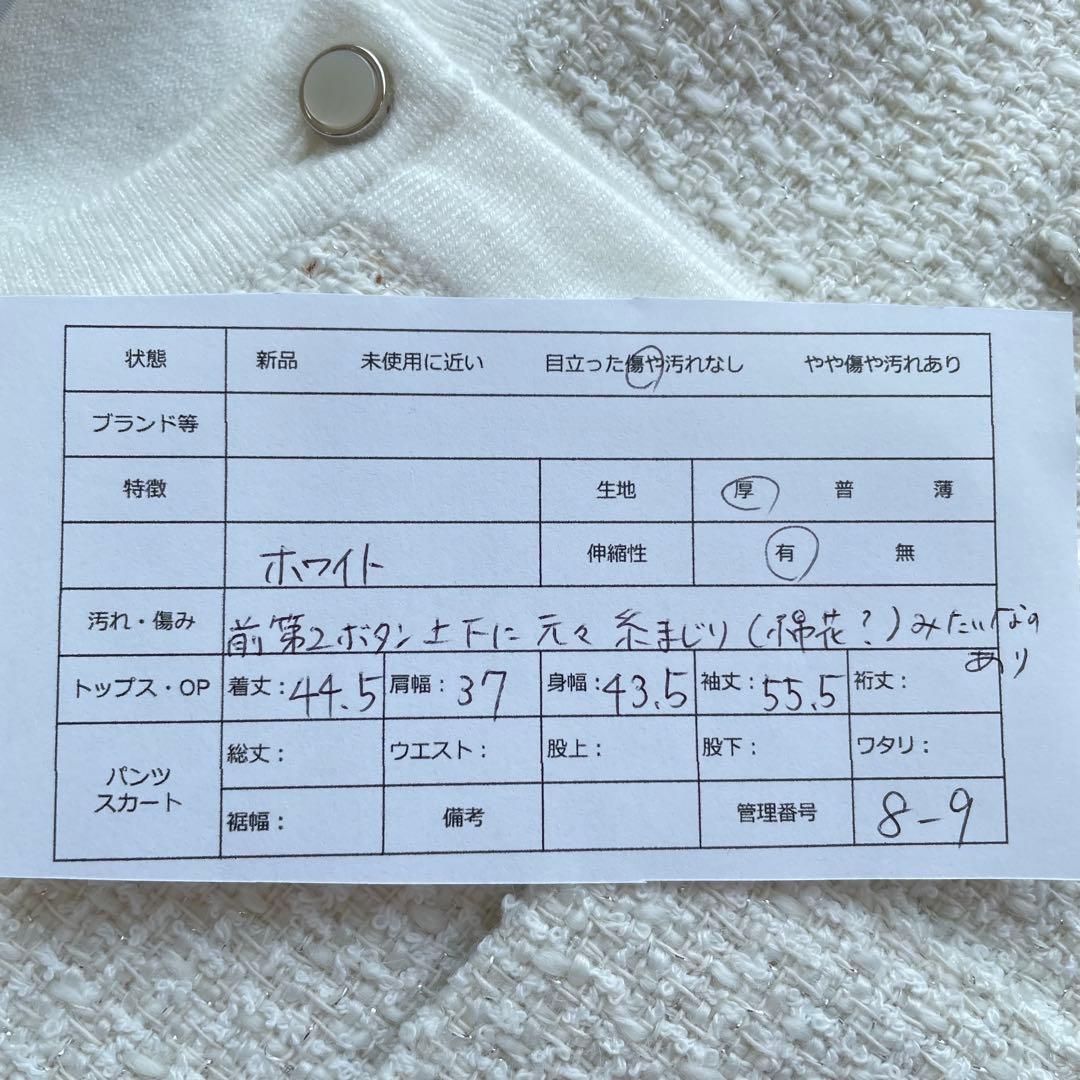 状態 新品 未使用に近い 目立った傷や汚れなし やや傷や汚れあり
ブランド等
特徴 生地 厚 普 薄
ホワイト 伸縮性 有 無
汚れ・傷み 前第2ボタン上下に元々糸まじり(綿花?)みたいなの
あり
トップス・OP 着丈:44.5 肩幅:37 身幅:43.5 袖丈:55.5 裄丈:
パンツ
スカート
総丈: ウエスト: 股上: 股下: ワタリ:
裾幅: 備考 管理番号 8-9